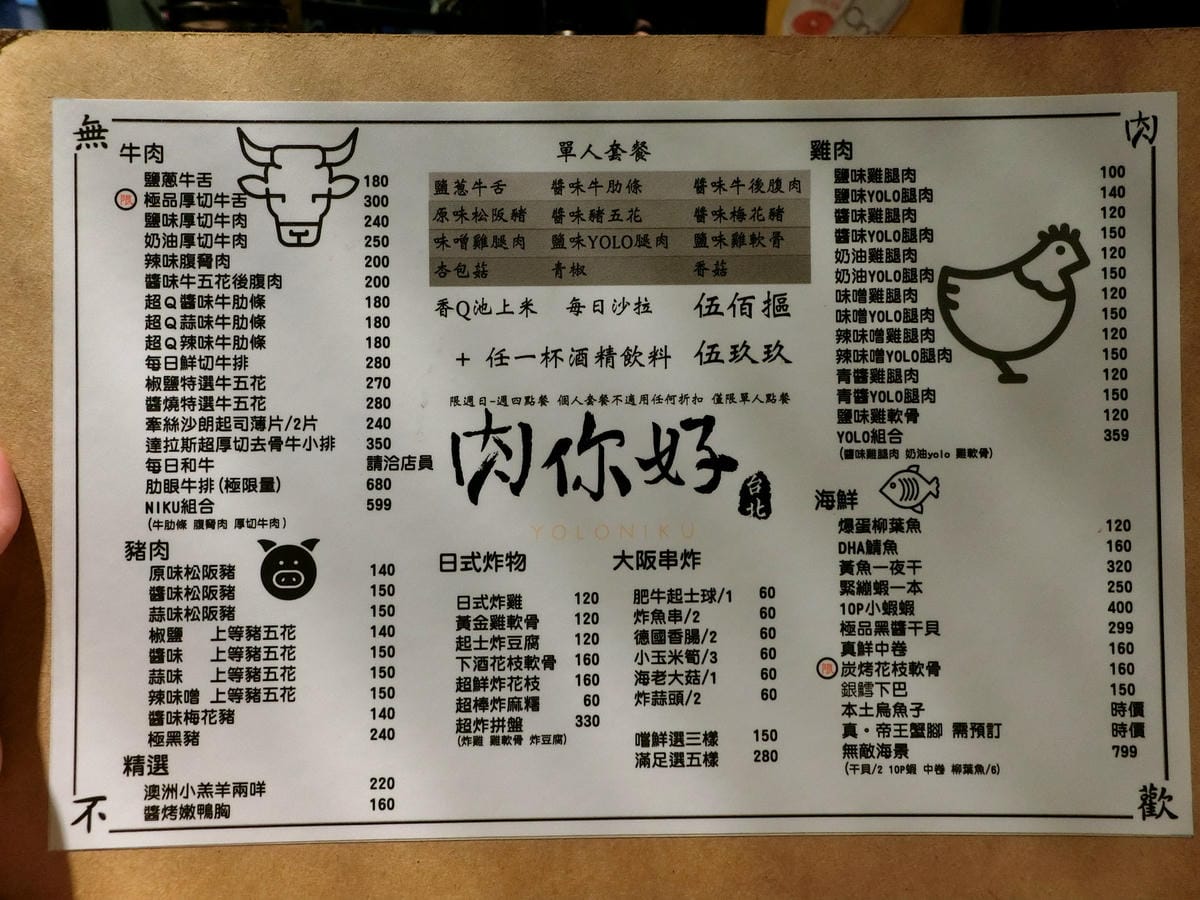 無
肉
牛肉
鹽蔥牛舌 180
限 極品厚切牛舌 300
鹽味厚切牛肉 240
奶油厚切牛肉 250
辣味腹脅肉 200
醬味牛五花後腹肉 200
超Q醬味牛肋條 180
超Q蒜味牛肋條 180
超Q辣味牛肋條 180
每日鮮切牛排 280
椒鹽特選牛五花 270
醬燒特選牛五花 280
牽絲沙朗起司薄片/2片 240
達拉斯超厚切去骨牛小排 350
每日和牛 請洽店員
肋眼牛排(極限量) 680
NIKU組合 599
(牛肋條 腹脅肉 厚切牛肉)
豬肉
原味松阪豬 140
醬味松阪豬 150
蒜味松阪豬 150
椒鹽 上等豬五花 140
醬味 上等豬五花 150
蒜味 上等豬五花 150
辣味噌 上等豬五花 150
醬味梅花豬 140
極黑豬 240
精選
澳洲小羔羊兩咩 220
醬烤嫩鴨胸 160
單人套餐
鹽蔥牛舌 醬味牛肋條 醬味牛後腹肉
原味松阪豬 醬味豬五花 醬味梅花豬
味噌雞腿肉 鹽味YOLO腿肉 鹽味雞軟骨
杏包菇 青椒 香菇
香Q池上米 每日沙拉 伍佰摳
+ 任一杯酒精飲料 伍玖玖
限週日-週四點餐 個人套餐不適用任何折扣 僅限單人點餐
肉你好
台北
YOLONIKU
日式炸物
日式炸雞 120
黃金雞軟骨 120
起士炸豆腐 120
下酒花枝軟骨 160
超鮮炸花枝 160
超棒炸麻糬 60
超炸拼盤 330
(炸雞 雞軟骨 炸豆腐)
大阪串炸
肥牛起士球/1 60
炸魚串/2 60
德國香腸/2 60
小玉米筍/3 60
海老大菇/1 60
炸蒜頭/2 60
嚐鮮選三樣 150
滿足選五樣 280
雞肉
鹽味雞腿肉 100
鹽味YOLO腿肉 140
醬味雞腿肉 120
醬味YOLO腿肉 150
奶油雞腿肉 120
奶油YOLO腿肉 150
味噌雞腿肉 120
味噌YOLO腿肉 150
辣味噌雞腿肉 120
辣味噌YOLO腿肉 150
青醬雞腿肉 120
青醬YOLO腿肉 150
鹽味雞軟骨 120
YOLO組合 359
(鹽味雞腿肉 奶油yolo 雞軟骨)
海鮮
爆蛋柳葉魚 120
DHA鯖魚 160
黃魚一夜干 320
緊繃蝦一本 250
10P小蝦蝦 400
極品黑醬干貝 299
真鮮中卷 160
限 炭烤花枝軟骨 160
銀鱈下巴 150
本土烏魚子 時價
真・帝王蟹腳 需預訂 時價
無敵海景 799
(干貝/2 10P蝦 中卷 柳葉魚/6)
不
歡